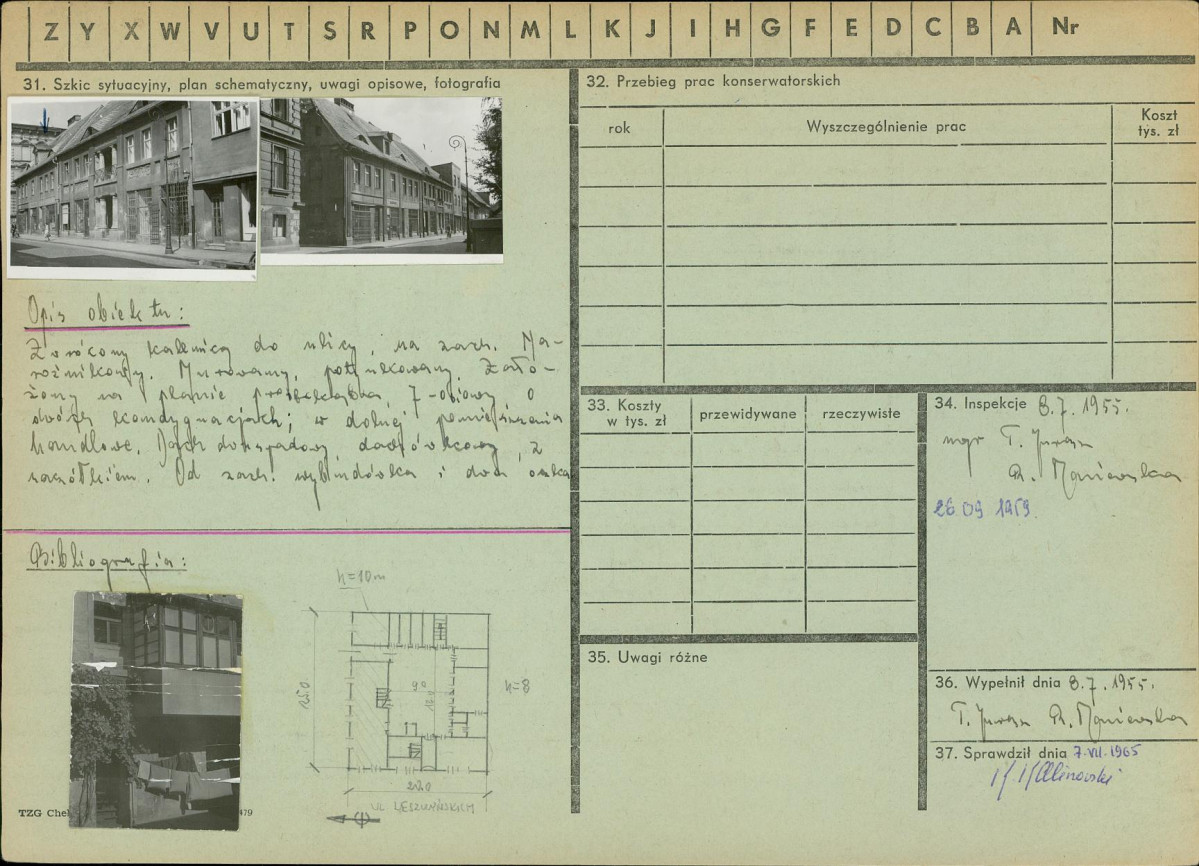 Z Y X W V U T S R P O N M L K J I H G F E D C B A Nr
31. Szkic sytuacyjny, plan schematyczny, uwagi opisowe, fotografia
Opis obiektu:
Zwrócony kalenicą do ulicy, na zach. Na-
rożnikowy. Murowany, potynkowany. Zało-
żony na planie prostokąta, 7-osiowy, o
dwóch kondygnacjach; w dolnej pomieszczenia
handlowe. Dach dwuspadowy, dachówkowy, z
naczółkiem. Od zach. wybudówka i dwa
Bibliografia:
h=10m
1520
90
h=8
2220
UL
TZG Cheł
479
32. Przebieg prac konserwatorskich
rok
Wyszczególnienie prac
Koszt
tys. zł
33. Koszty
w tys. zł
przewidywane
rzeczywiste
34. Inspekcje 8.7.1955.
mgr T. Jurasz
R. Maniewska
26 09 1959.
35. Uwagi różne
36. Wypełnił dnia 8.7.1955.
T. Jurasz R. Maniewska
37. Sprawdził dnia 7.VII.1965
Kalinowski